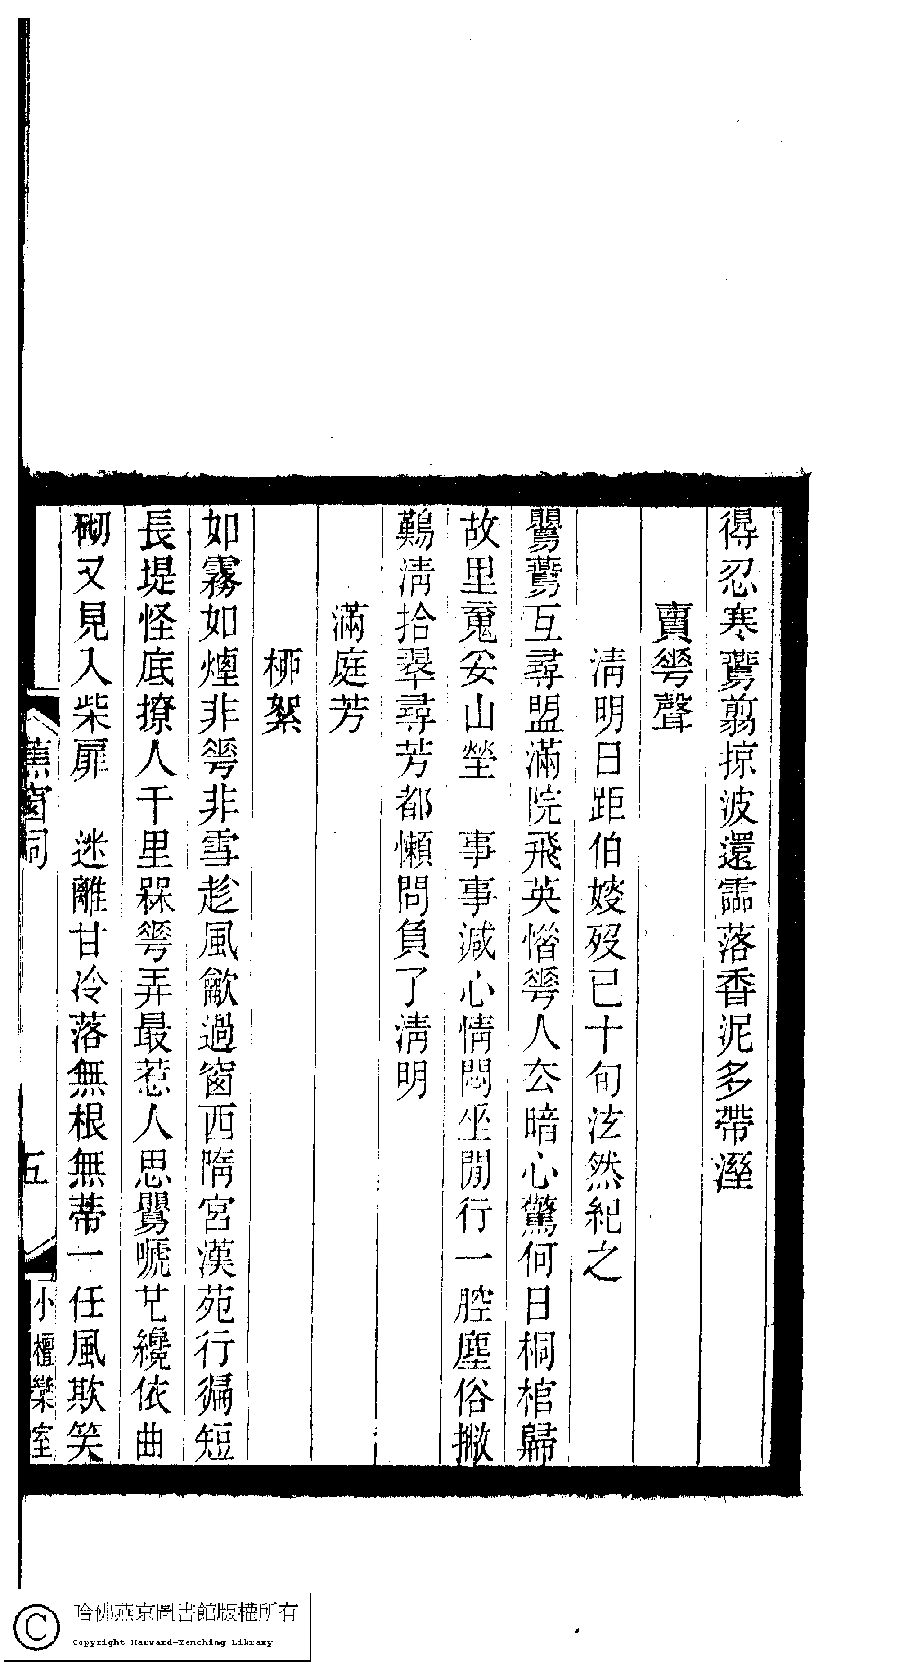 得忍寒鷰翦掠波還霝落香泥多帶溼
賣華聲
淸明日距伯嫂歿已十旬泫然紀之
鸎鷰互尋盟滿院飛英惜華人厺暗心驚何日桐棺歸
故里䰟安山塋　事事減心情悶坐閒行一腔塵俗撇
難淸拾翠尋芳都懶問負了淸明
滿庭芳
桺絮
如霧如煙非華非雪趁風歙過窗西隋宮漢苑行徧短
長堤怪底撩人千里華弄最惹人思鸎嗁纔依曲
砌又見入柴扉　迷離甘冷落無根無蒂一任風欺笑
蕉窗詞
五
小檀欒室
哈佛燕京圖書館版權所有
Copyright Harvard-Yenching Library